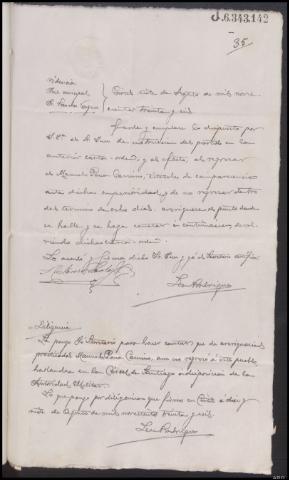 J.6.343.142
35
Providencia
Juez municipal
Sr.
Cores siete de Agosto de mil nove
cientos treinta y seis
Guarde y cumplase lo dispuesto por
S. Sª el Sr. Juez de instruccion del partido en la
anterior carta-orden, y al efecto, al regresar
el Manuel Pena Camino, citesele de comparecencia
ante dicha superioridad, y de no regresar dentro
del termino de ocho dias, averigüese el punto donde
se halle, y se haga constar a continuacion devol
viendo dicha carta-orden.
Lo mandó y firma dicho Sr. Juez y yo el Secretario certifico.
Leo Rodriguez
Diligencia
La pongo yo Secretario para hacer constar que de averiguaciones
practicadas Manuel Pena Camino, aun no regresó a este pueblo,
hallandose en la Carcel de Santiago a disposicion de la
Autoridad Militar.
Y lo que pongo por diligencia que firmo en a diez y
siete de Agosto de mil novecientos treinta y seis.
Leo Rodriguez